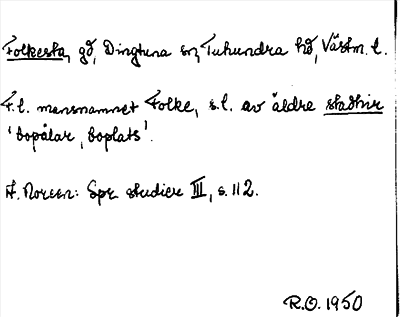 Folkesta, gd, Dingtuna sn, Tuhundra hd, Västm. l.
F.l. mansnamnet Folke, s.l. av äldre stadhir
'bopålar, boplats'.
A. Noreen: Spr. studier III, s. 112.
R.O. 1950